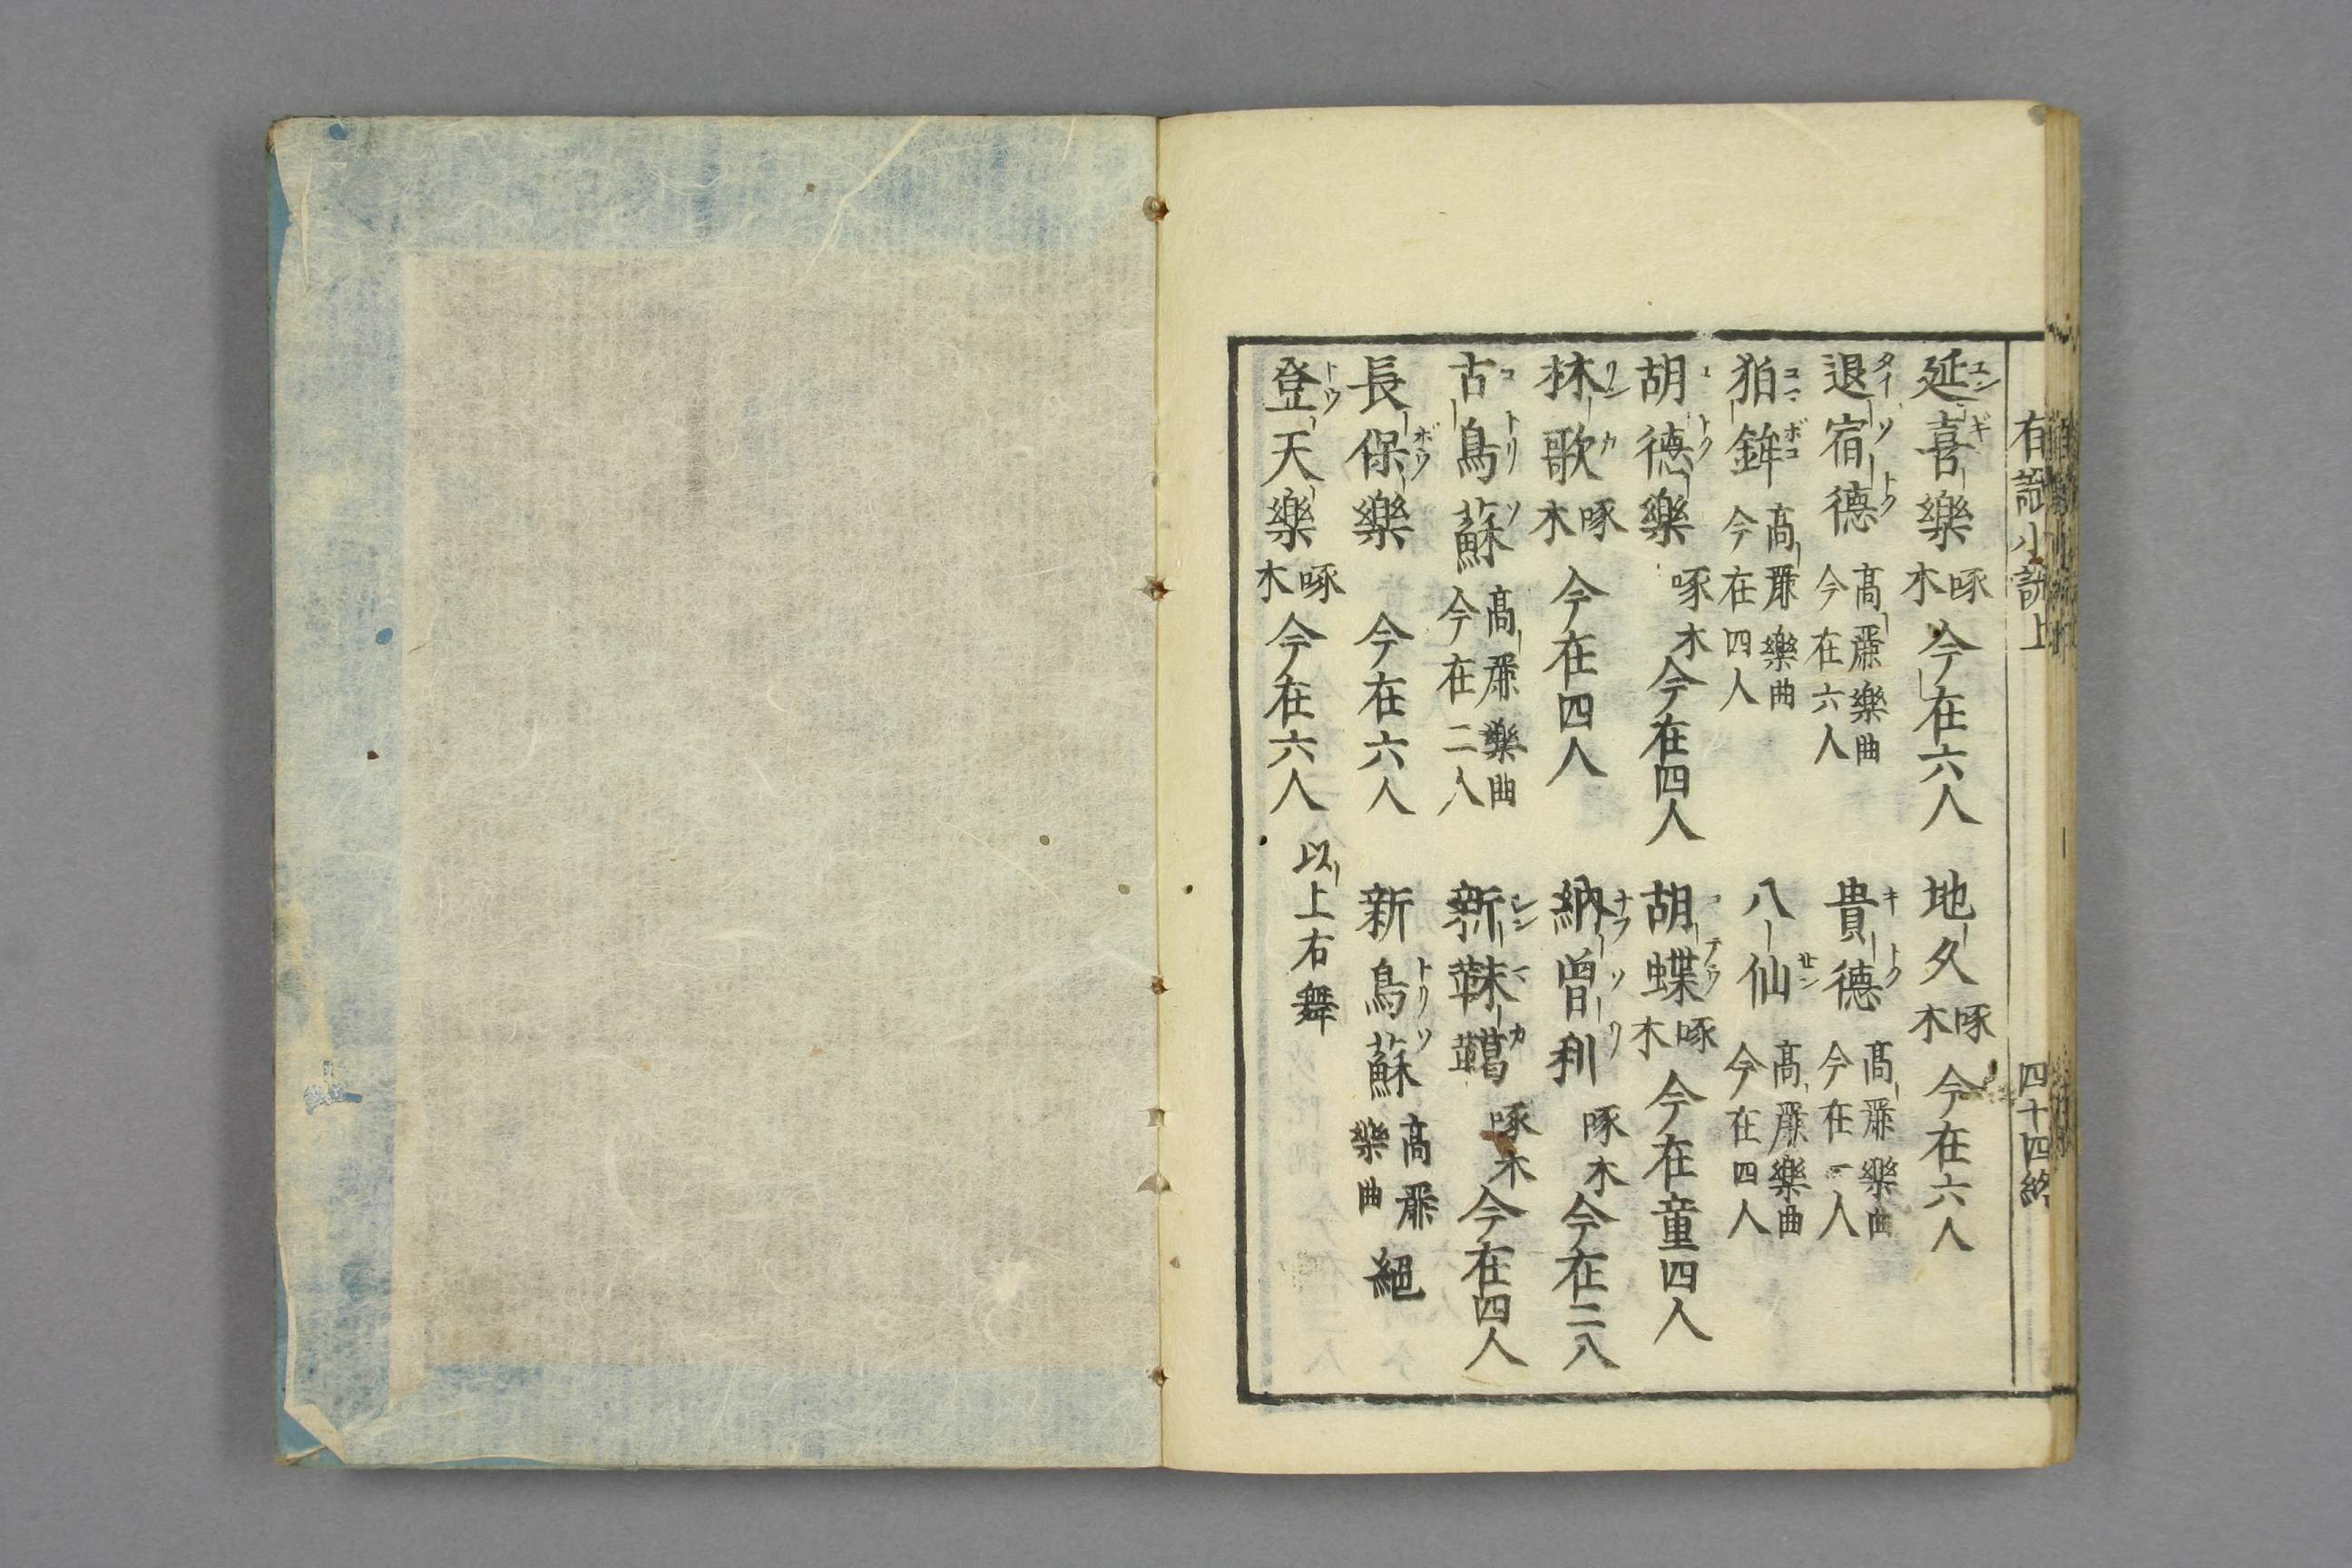 延喜樂 啄木 今在六人 地久 啄木 今在六人
退宿德 高麗樂曲 今在六人 貴德 高麗樂曲 今在一人
狛鉾 高麗樂曲 今在四人 八仙 高麗樂曲 今在四人
胡德樂 啄木 今在四人 胡蝶 啄木 今在童四人
林歌 啄木 今在四人 納曽利 啄木 今在二人
古鳥蘇 高麗樂曲 今在二人 新靺鞨 啄木 今在四人
長保樂 今在六人 新鳥蘇 高麗樂曲 絕
登天樂 啄木 今在六人 以上右舞
四十四終